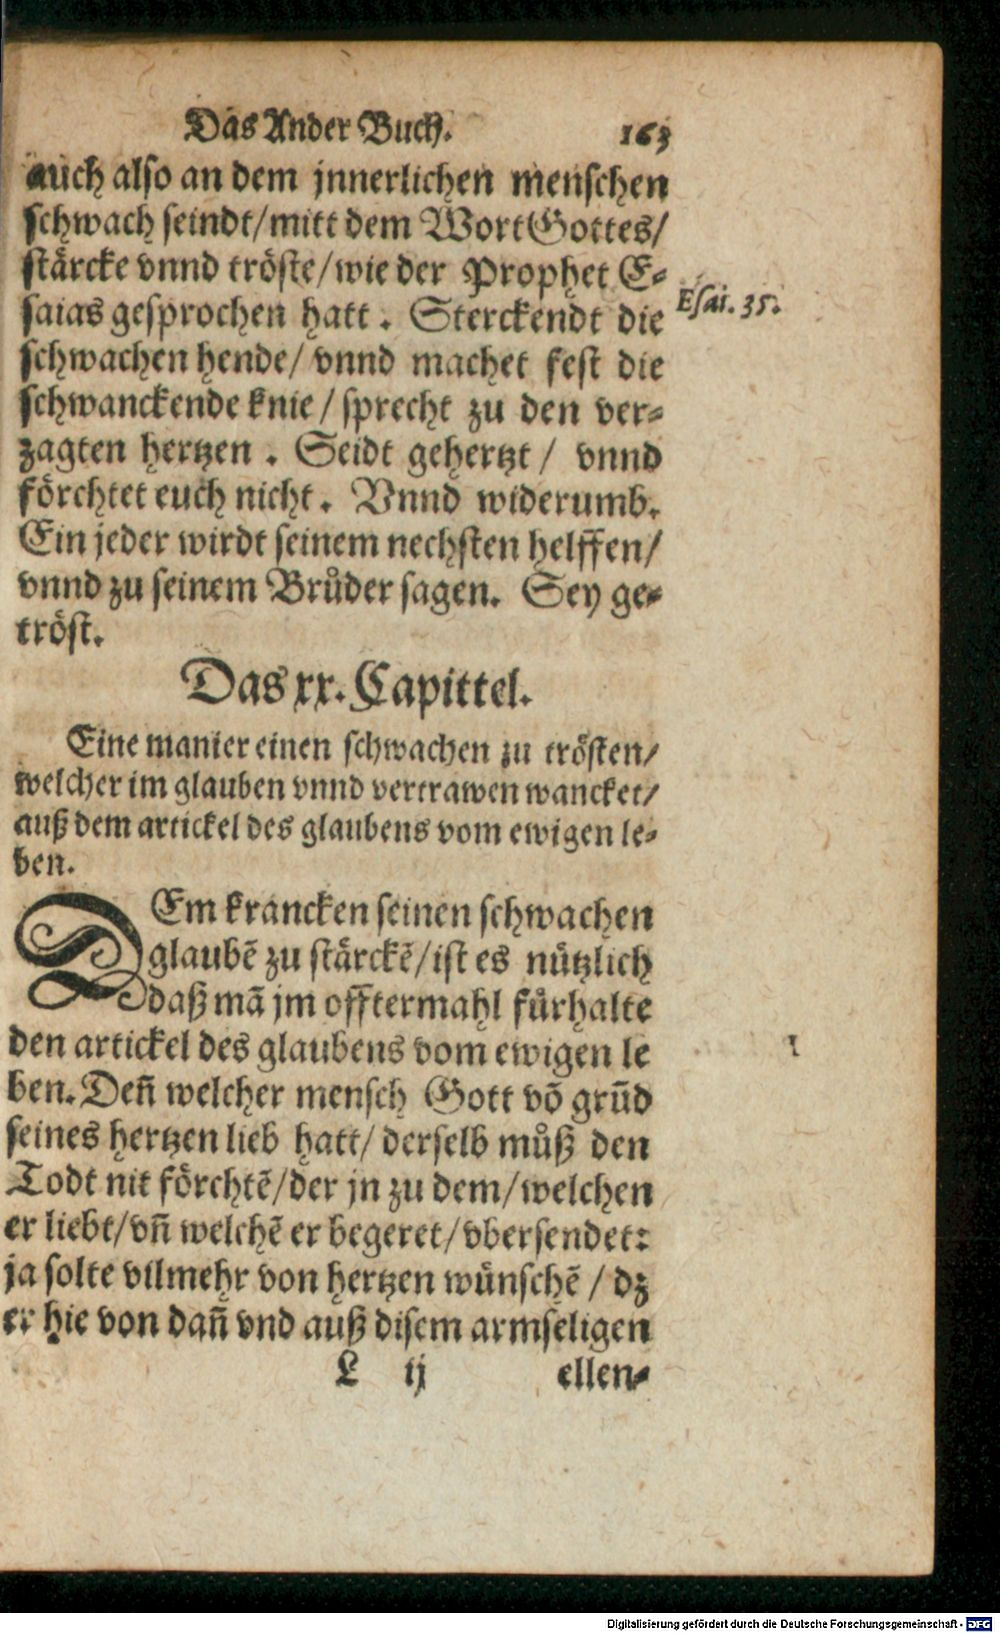 Das Ander Buch. 163
auch also an dem jnnerlichen menschen
schwach seindt/mitt dem Wort Gottes/
stärcke vnnd tröste/wie der Prophet E-
saias gesprochen hatt. Sterckendt die
Esai. 35.
schwachen hende/ vnnd machet fest die
schwanckende knie/sprecht zu den ver-
zagten hertzen. Seidt gehertzt/ vnnd
förchtet euch nicht. Vnnd widerumb.
Ein jeder wirdt seinem nechsten helffen/
vnnd zu seinem Brůder sagen. Sey ge-
tröst.
Das xx. Capittel.
Eine manier einen schwachen zu trösten/
welcher im glauben vnnd vertrawen wancket/
auß dem artickel des glaubens vom ewigen le-
ben.
DEm krancken seinen schwachen
glaubẽ zu stärckẽ/ist es nützlich
daß mã jm offtermahl fürhalte
den artickel des glaubens vom ewigen le
1
ben. Deñ welcher mensch Gott võ grũd
seines hertzen lieb hatt/ derselb můß den
Todt nit förchtẽ/der jn zu dem/welchen
er liebt/vñ welchẽ er begeret/vbersendet:
ja solte vilmehr von hertzen wünschẽ/dz
er hie von dañ vnd auß disem armseligen
L ij ellen-
Digitalisierung gefördert durch die Deutsche Forschungsgemeinschaft - DFG